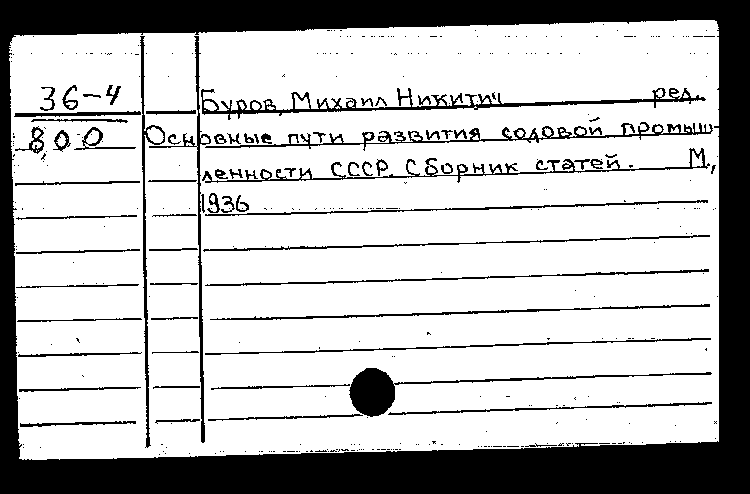 36-4
800
Буров, Михаил Никитич ред.
Основные пути развития содовой промыш-
ленности СССР. Сборник статей. М.,
1936